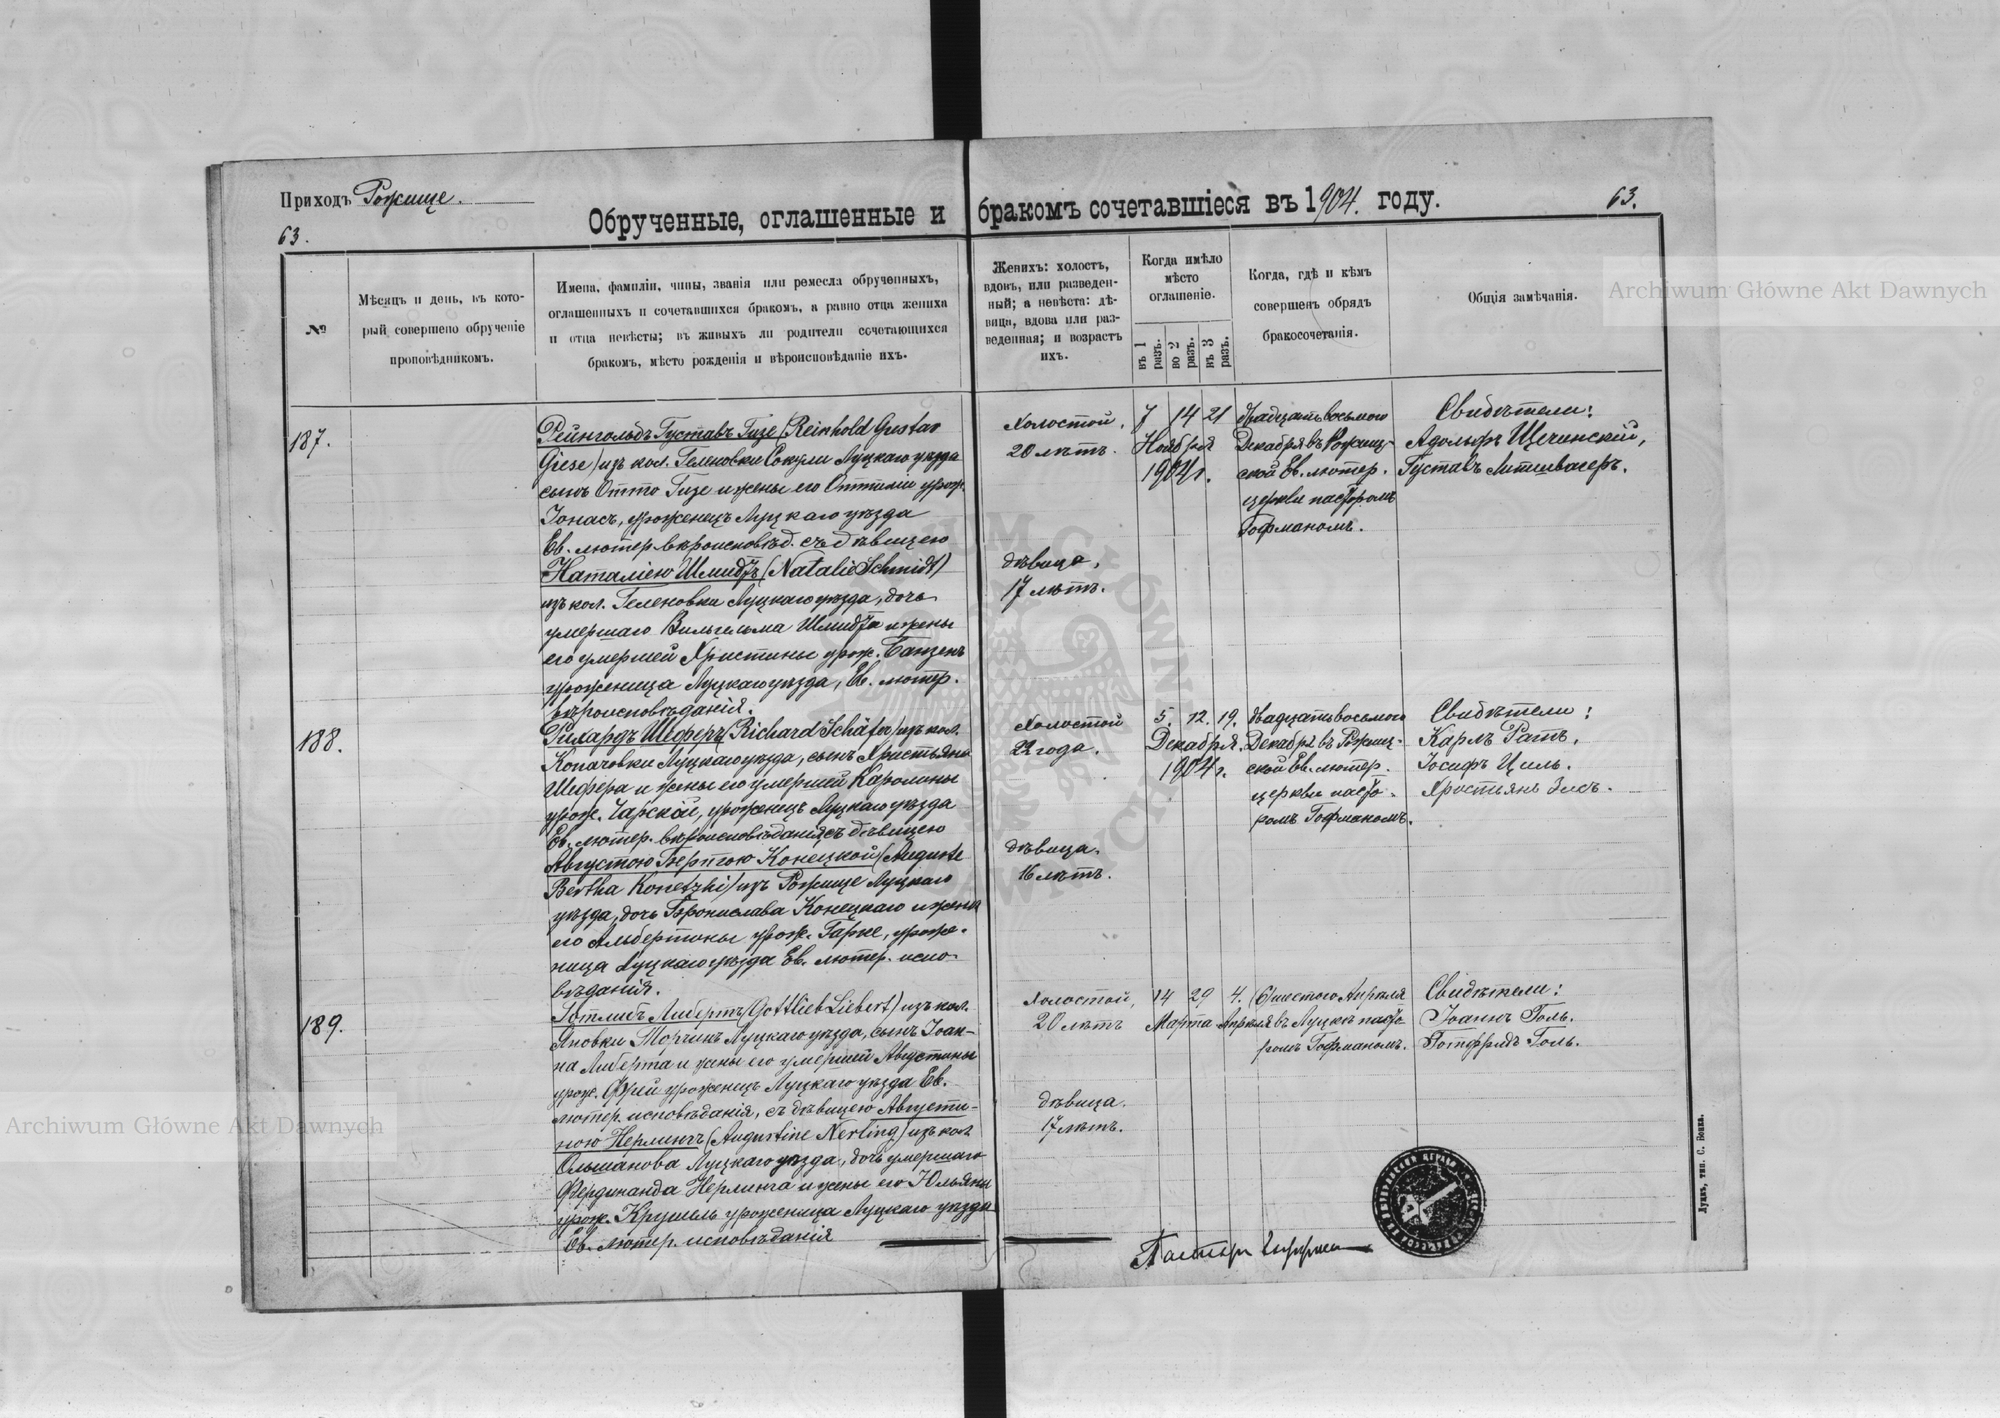 Приходъ Рожище.
63.
Обрученные, оглашенные и бракомъ сочетавшіеся въ 1904. году.
63.
№
Мѣсяцъ и день, въ кото-
рый совершено обрученіе
проповѣдникомъ.
Имена, фамиліи, чины, званія или ремесла обрученныхъ,
оглашенныхъ и сочетавшихся бракомъ, а равно отца жениха
и отца невѣсты; въ живыхъ ли родители сочетающихся
бракомъ, мѣсто рожденія и вѣроисповѣданіе ихъ.
Женихъ: холостъ,
вдовъ, или разведен-
ный; а невѣста: дѣ-
вица, вдова или раз-
веденная; и возрастъ
ихъ.
Когда имѣло
мѣсто
оглашеніе.
въ 1 разъ.
во 2 разъ.
въ 3 разъ.
Когда, гдѣ и кѣмъ
совершенъ обрядъ
бракосочетанія.
Общія замѣчанія.
Archiwum Główne Akt Dawnych
187.
Рейнгольдъ Густавъ Гизе (Reinhold Gustav
Giese) изъ кол. Геленовки Сокули Луцкаго уѣзда
сынъ Отто Гизе и жены его Оттиліи урож.
Іонасъ, уроженецъ Луцкаго уѣзда
Ев. лютер. вѣроисповѣд. съ дѣвицею
Наталіею Шмидтъ (Natalie Schmidt)
изъ кол. Геленовки Луцкаго уѣзда, дочь
умершаго Вильгельма Шмидта и жены
его умершей Христины урож. Банзенъ
уроженица Луцкаго уѣзда, Ев. лютер.
вѣроисповѣданія.
Холостой,
20 лѣтъ.
дѣвица,
17 лѣтъ.
7 14 21
Ноября
1904 г.
двадцать восьмого
Декабря въ Рожищ-
ской Ев. лютер.
церкви пасторомъ
Гофманомъ.
Свидѣтели:
Адольфъ Щечинскій,
Густавъ Литшвагеръ.
188.
Рихардъ Шеферъ (Richard Schäfer) изъ кол.
Копачовки Луцкаго уѣзда, сынъ Христьяна
Шефера и жены его умершей Каролины
урож. Чарской, уроженецъ Луцкаго уѣзда
Ев. лютер. вѣроисповѣданія съ дѣвицею
Августою Бертою Конецкой (Auguste
Bertha Konetzki) изъ Рожище Луцкаго
уѣзда, дочь Бронислава Конецкаго и жены
его Альбертины урож. Гарке, уроже-
ница Луцкаго уѣзда Ев. лютер. испо-
вѣданія.
Холостой
22 года.
дѣвица.
16 лѣтъ.
5. 12. 19.
Декабря.
1904 г.
двадцать восьмого
Декабря въ Рожищ-
ской Ев. лютер.
церкви пасто-
ромъ Гофманомъ.
Свидѣтели:
Карлъ Ратъ,
Іосифъ Циль.
Христьянъ Зисъ.
189.
Готлибъ Либертъ (Gottlieb Liebert) изъ кол.
Яновки Торчинъ Луцкаго уѣзда, сынъ Іоан-
на Либерта и жены его умершей Августины
урож. Фрей уроженецъ Луцкаго уѣзда Ев.
лютер. исповѣданія, съ дѣвицею Августи-
ною Нерлингъ (Augustine Nerling) изъ кол.
Ольшанова Луцкаго уѣзда, дочь умершаго
Фердинанда Нерлинга и жены его Юльяны
урож. Крушель уроженица Луцкаго уѣзда
Ев. лютер. исповѣданія
Холостой,
20 лѣтъ
дѣвица.
17 лѣтъ.
14 29 4.
Марта Апрѣля
(6) шестого Апрѣля
въ Луцкѣ пасто-
ромъ Гофманомъ.
Свидѣтели:
Іоаннъ Голь.
Готфридъ Голь.
Пасторъ Гофманъ
Луцкъ, тип. С. Бонка.
Archiwum Główne Akt Dawnych